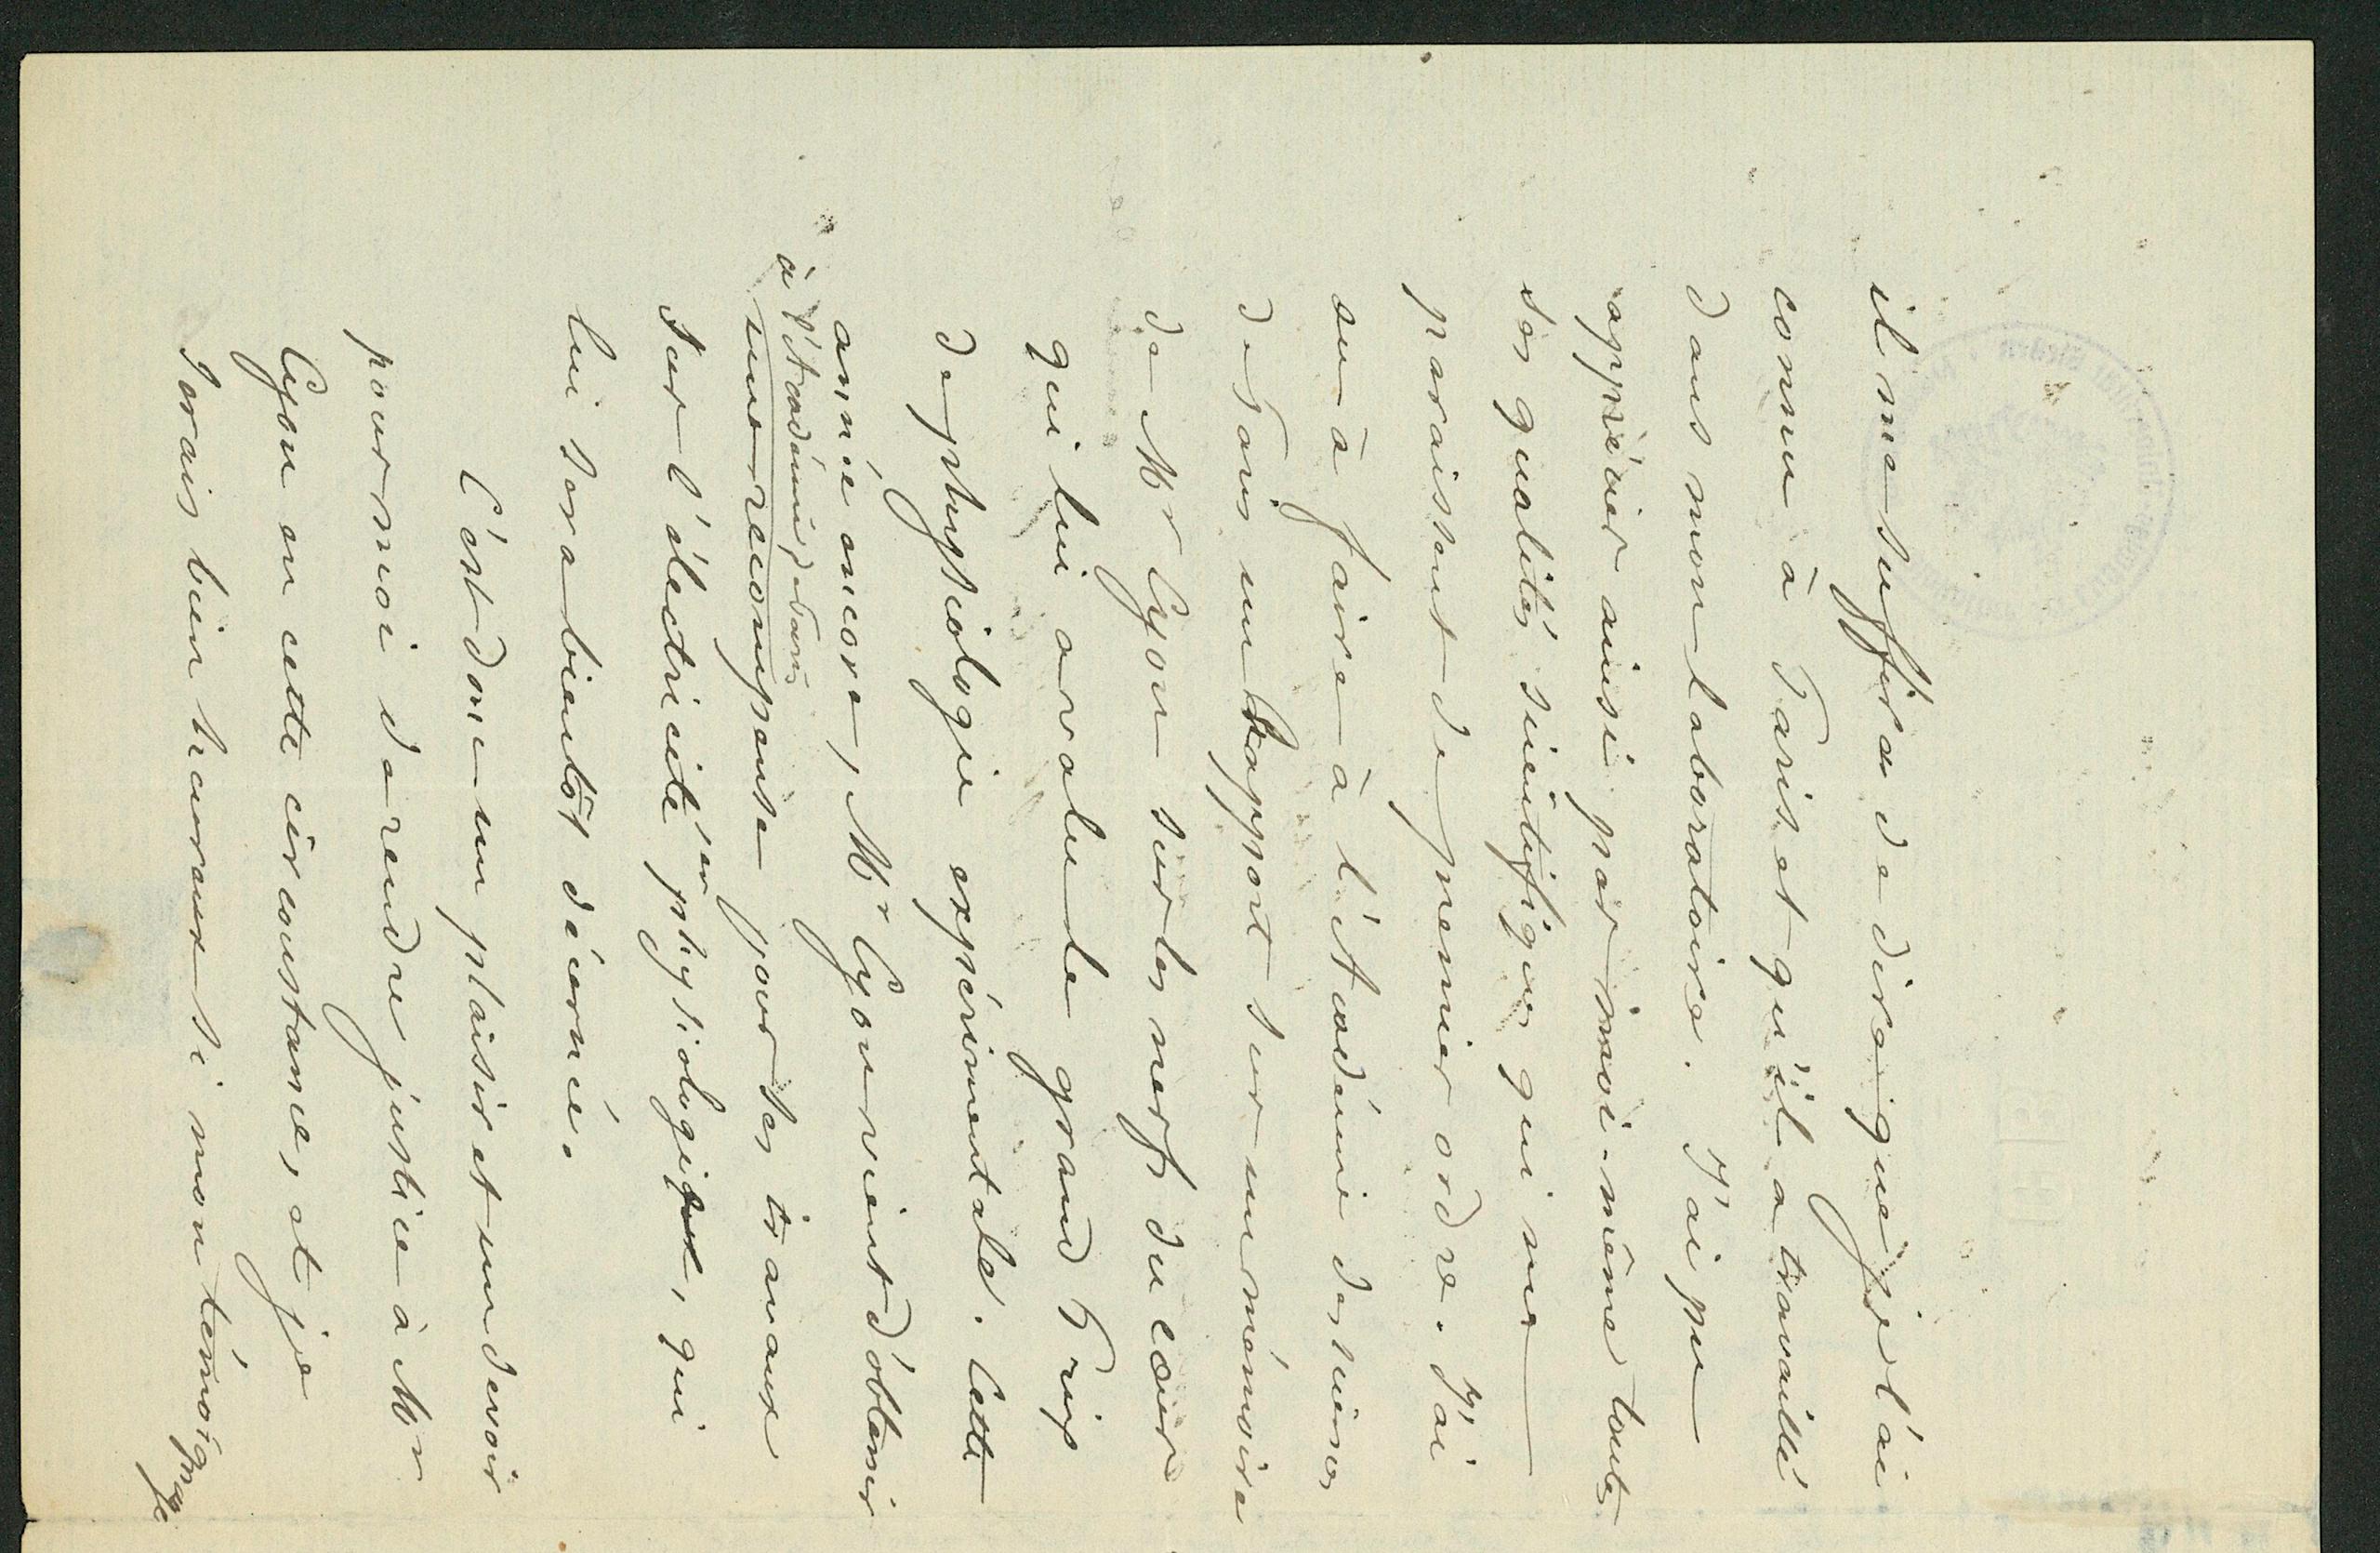 il me suffira de dire que je l'ai
connu à Paris et qu'il a travaillé
dans mon laboratoire. J'ai pu
apprécier ainsi par moi-même toutes
ses qualités scientifiques qui me
paraissent de premier ordre. J'ai
eu à faire à l'Académie des sciences
de Paris un Rapport sur un mémoire
de Mr Cyon sur les nerfs du cœur
qui lui a valu le grand Prix
de physiologie expérimentale. Cette
année encore, Mr Cyon vient d'obtenir
à l'Académie de Paris
une récompense pour ses travaux
sur l'électricité en physiologie, qui
lui sera bientôt décernée.
C'est donc un plaisir et un devoir
pour moi de rendre justice à Mr
Cyon en cette circonstance, et je
serais bien heureux si mon témoignage